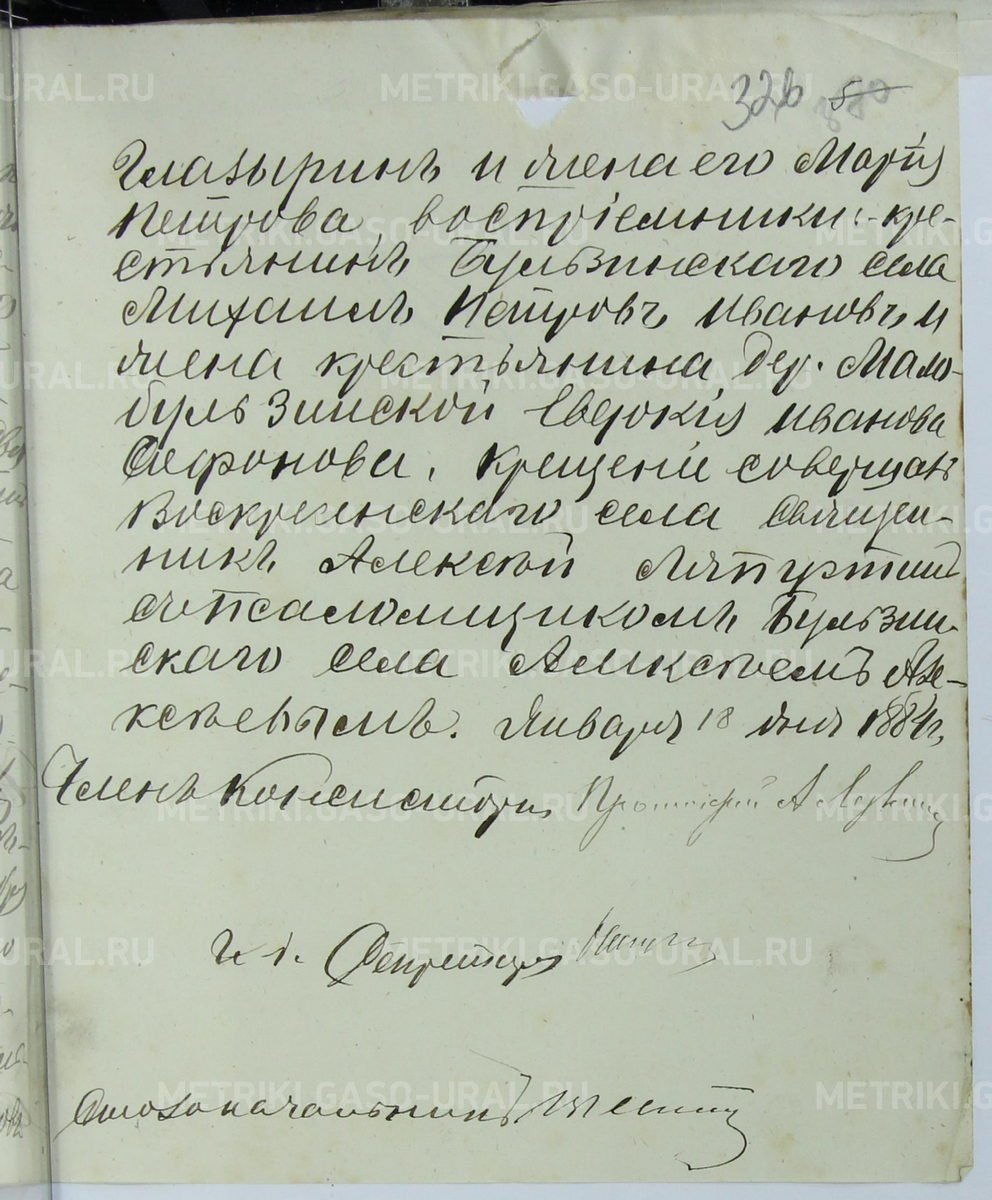 326
Глазыринъ и жена его Марія
Петрова, воспріемники: кре-
стьянинъ Бульзинскаго села
Михаилъ Петровъ Ивановъ и
жена крестьянина дер. Мало-
бульзинской Евдокія Иванова
Сафонова. Крещеніе совершалъ
Воскресенскаго села священ-
никъ Алексѣй
съ псаломщикомъ Бульзин-
скаго села Алексѣемъ Але-
ксѣевымъ. Января 18 дня 1884 г.
Членъ Консисторіи, Протоіерей А.
И. д. Секретаря
Столоначальникъ
METRIKI.GASO-URAL.RU